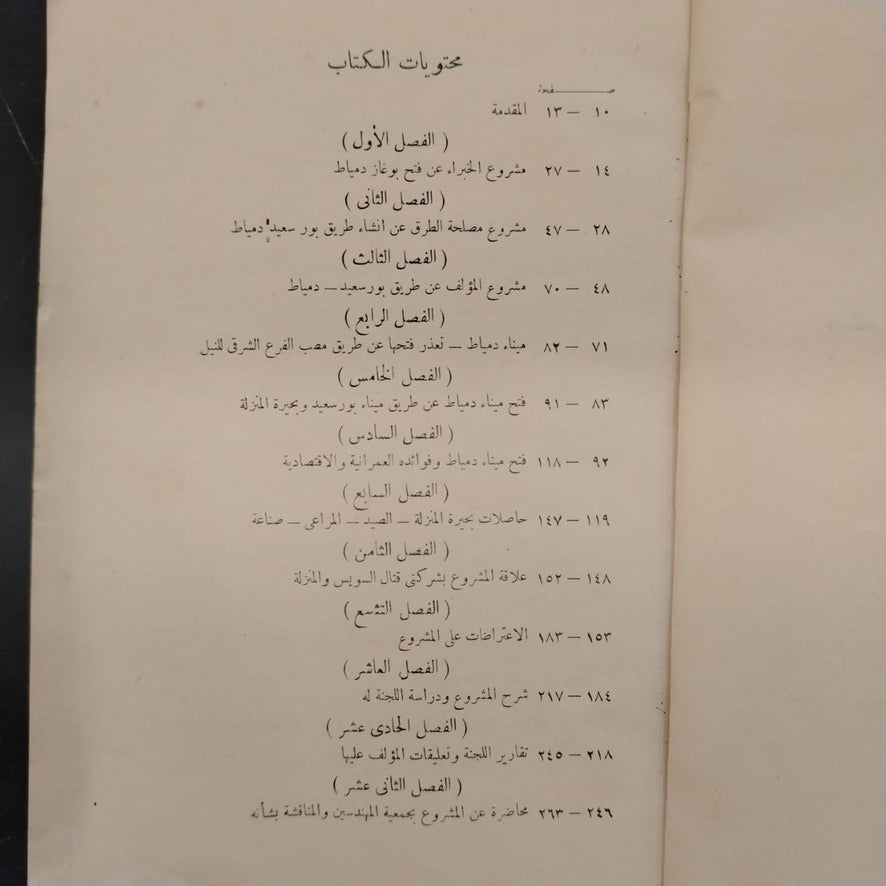 محتويات الكتاب
صفحة
١٠ — ١٣ المقدمة
( الفصل الأول )
١٤ — ٢٧ مشروع الخبراء عن فتح بوغاز دمياط
( الفصل الثانى )
٢٨ — ٤٧ مشروع مصلحة الطرق عن انشاء طريق بور سعيد دمياط
( الفصل الثالث )
٤٨ — ٧٠ مشروع المؤلف عن طريق بورسعيد — دمياط
( الفصل الرابع )
٧١ — ٨٢ ميناء دمياط — تعذر فتحها عن طريق مصب الفرع الشرقى للنيل
( الفصل الخامس )
٨٣ — ٩١ فتح ميناء دمياط عن طريق ميناء بورسعيد وبحيرة المنزلة
( الفصل السادس )
٩٢ — ١١٨ فتح ميناء دمياط وفوائده العمرانية والاقتصادية
( الفصل السابع )
١١٩ — ١٤٧ حاصلات بحيرة المنزلة — الصيد — المراعى — صناعة
( الفصل الثامن )
١٤٨ — ١٥٢ علاقة المشروع بشركتى قنال السويس والمنزلة
( الفصل التسع )
١٥٣ — ١٨٣ الاعتراضات على المشروع
( الفصل العاشر )
١٨٤ — ٢١٧ شرح المشروع ودراسة اللجنة له
( الفصل الحادى عشر )
٢١٨ — ٢٤٥ تقارير اللجنة وتعليقات المؤلف عليها
( الفصل الثانى عشر )
٢٤٦ — ٢٦٣ محاضرة عن المشروع بجمعية المهندسين والمناقشة بشأنه